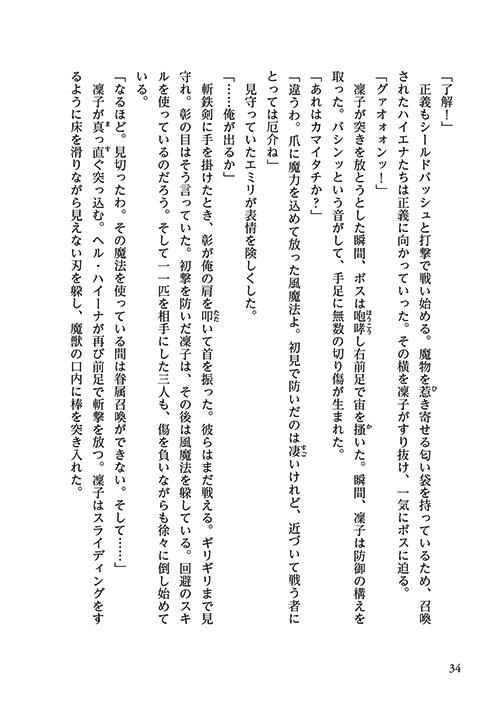 「了解！」
　正義もシールドバッシュと打撃で戦い始める。魔物を惹き寄せる匂い袋を持っているため、召喚
されたハイエナたちは正義に向かっていった。その横を凜子がすり抜け、一気にボスに迫る。
「グァオォォンッ！」
　凜子が突きを放とうとした瞬間、ボスは咆哮し右前足で宙を掻いた。瞬間、凜子は防御の構えを
取った。バシンッという音がして、手足に無数の切り傷が生まれた。
「あれはカマイタチか？」
「違うわ。爪に魔力を込めて放った風魔法よ。初見で防いだのは凄いけれど、近づいて戦う者に
とっては厄介ね」
　見守っていたエミリが表情を険しくした。
「……俺が出るか」
　斬鉄剣に手を掛けたとき、彰が俺の肩を叩いて首を振った。彼らはまだ戦える。ギリギリまで見
守れ。彰の目はそう言っていた。初撃を防いだ凜子は、その後は風魔法を躱している。回避のスキ
ルを使っているのだろう。そして一一匹を相手にした三人も、傷を負いながらも徐々に倒し始めて
いる。
「なるほど。見切ったわ。その魔法を使っている間は眷属召喚ができない。そして……」
　凜子が真っ直ぐ突っ込む。ヘル・ハイーナが再び前足で斬撃を放つ。凜子はスライディングをす
るように床を滑りながら見えない刃を躱し、魔獣の口内に棒を突き入れた。
34